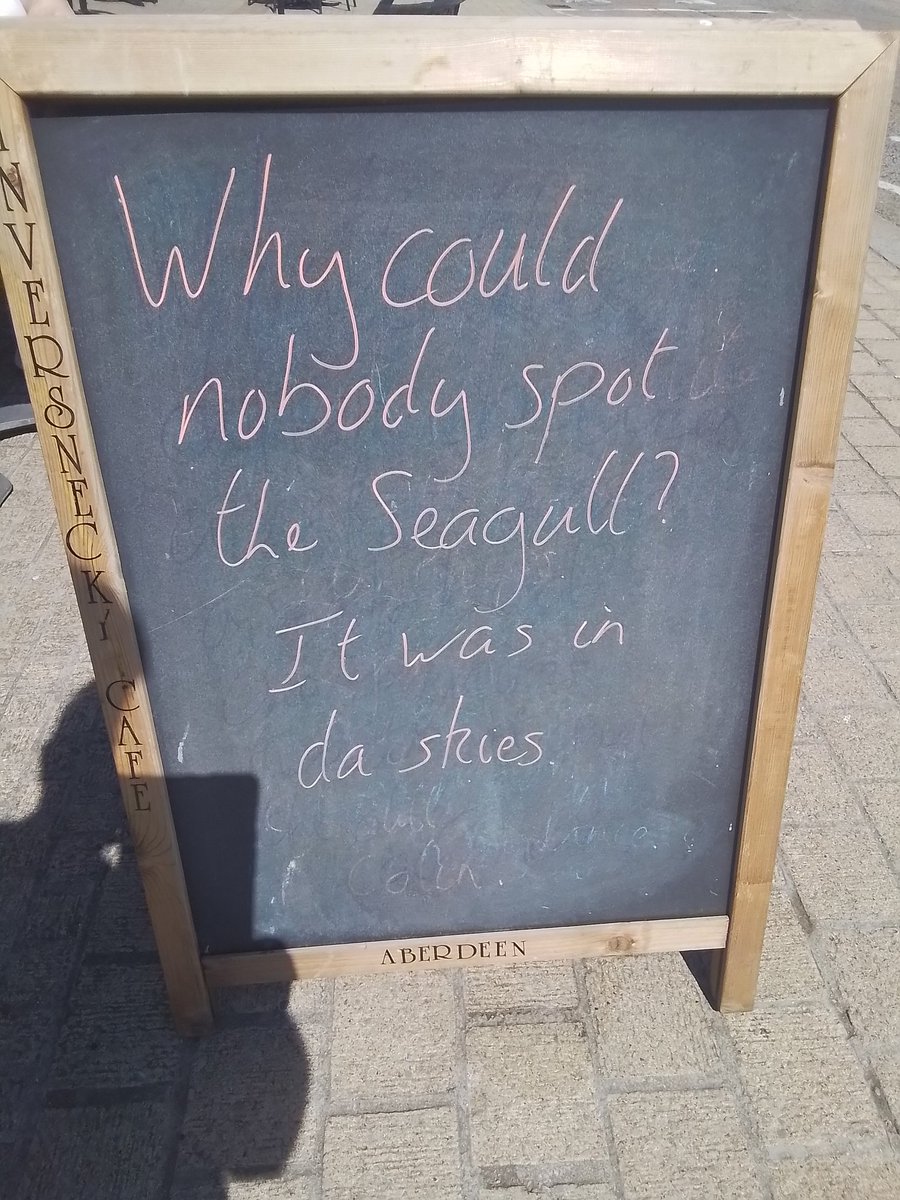 Why could
nobody spot
the Seagull?
It was in
da skies
Colin
INVERSNECKY CAFE
ABERDEEN